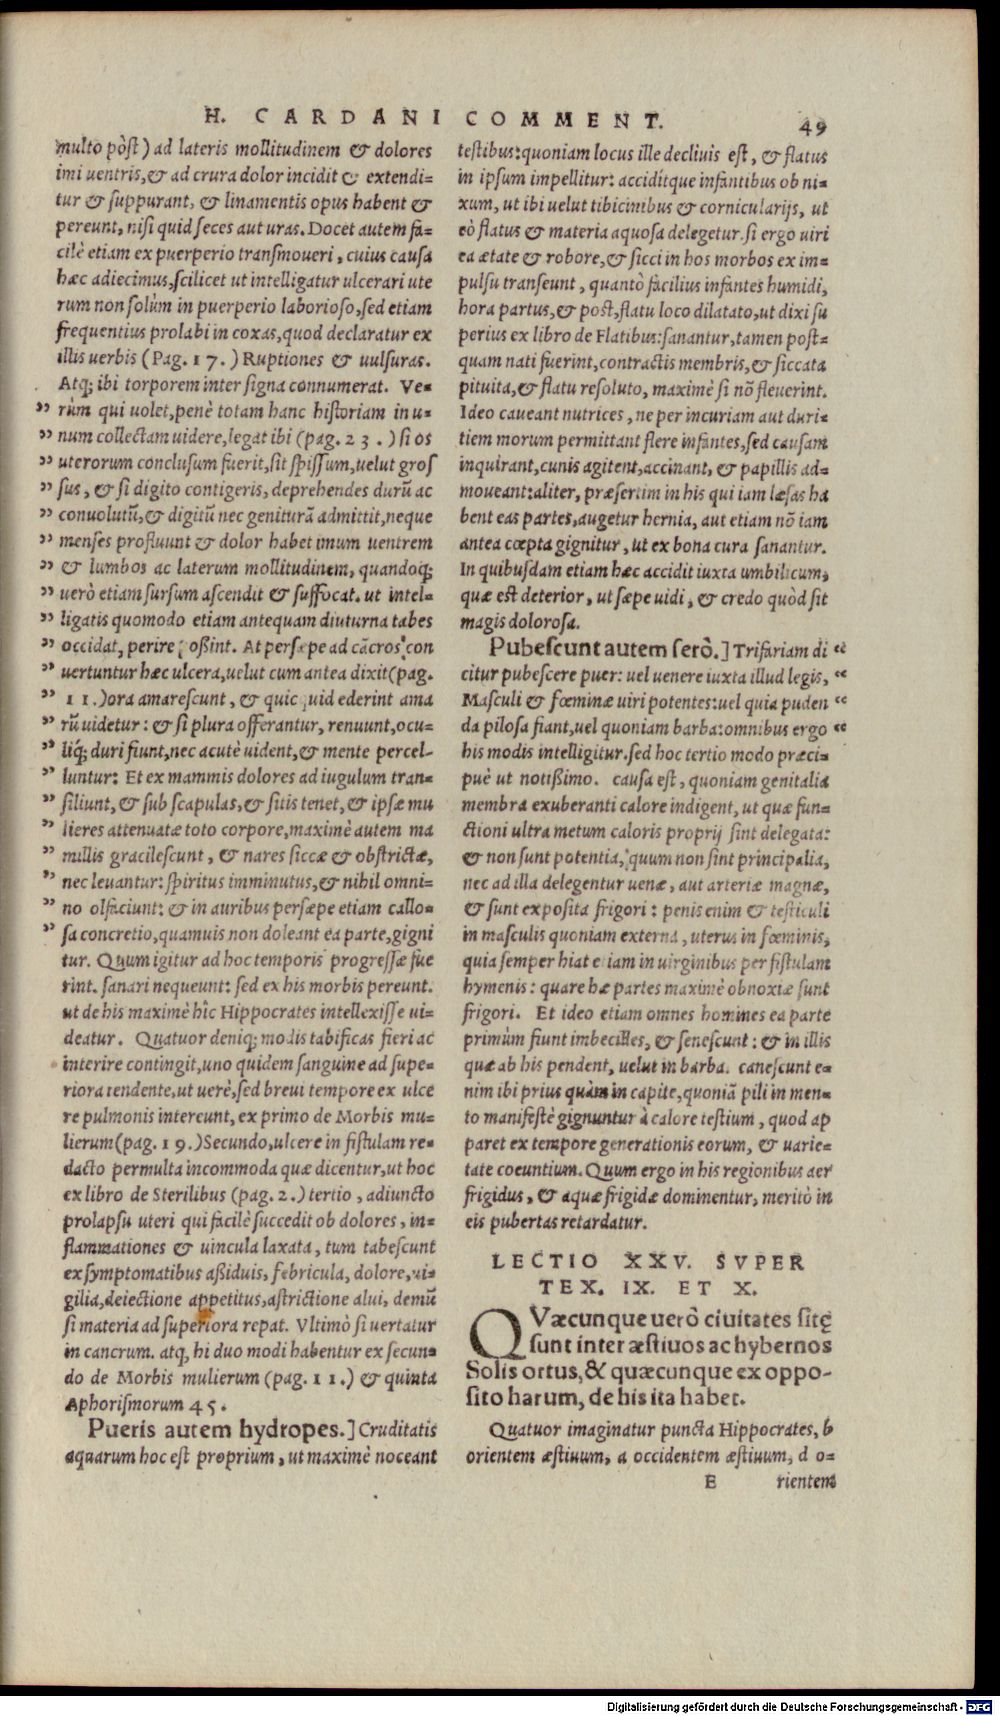 H. CARDANI COMMENT. 49
multo pòst) ad lateris mollitudinem & dolores
imi uentris, & ad crura dolor incidit & extendi=
tur & suppurant, & linamentis opus habent &
pereunt, nisi quid seces aut uras. Docet autem fa=
cilè etiam ex puerperio transmoueri, cuius causa
hæc adiecimus, scilicet ut intelligatur ulcerari ute
rum non solùm in puerperio laborioso, sed etiam
frequentius prolabi in coxas, quod declaratur ex
illis uerbis (Pag. 17.) Ruptiones & uulsuras.
Atq; ibi torporem inter signa connumerat. Ve=
„ rùm qui uolet, penè totam hanc historiam in u=
„ num collectam uidere, legat ibi (pag. 23.) si os
„ uterorum conclusum fuerit, sit spissum, uelut gros
„ sus, & si digito contigeris, deprehendes durũ ac
„ conuolutũ, & digitũ nec geniturã admittit, neque
„ menses profluunt & dolor habet imum uentrem
„ & lumbos ac laterum mollitudinem, quandoq;
„ uerò etiam sursum ascendit & suffocat. ut intel=
„ ligatis quomodo etiam antequam diuturna tabes
„ occidat, perire possint. At persæpe ad cãcros con
„ uertuntur hæc ulcera, uelut cum antea dixit (pag.
„ 11.) ora amarescunt, & quic quid ederint ama
„ rũ uidetur: & si plura offerantur, renuunt, ocu=
„ liq; duri fiunt, nec acutè uident, & mente percel=
„ luntur: Et ex mammis dolores ad iugulum tran=
„ siliunt, & sub scapulas, & sitis tenet, & ipsæ mu
„ lieres attenuatæ toto corpore, maximè autem ma
„ millis gracilescunt, & nares siccæ & obstrictæ,
„ nec leuantur: spiritus imminutus, & nihil omni=
„ no olfaciunt: & in auribus persæpe etiam callo=
„ sa concretio, quamuis non doleant ea parte, gigni
tur. Quum igitur ad hoc temporis progressæ fue
rint. sanari nequeunt: sed ex his morbis pereunt.
ut de his maximè hîc Hippocrates intellexisse ui=
deatur. Quatuor deniq; modis tabificas fieri ac
interire contingit, uno quidem sanguine ad supe=
riora tendente, ut uerè, sed breui tempore ex ulce
re pulmonis intereunt, ex primo de Morbis mu=
lierum (pag. 19.) Secundo, ulcere in fistulam re=
dacto permulta incommoda quæ dicentur, ut hoc
ex libro de Sterilibus (pag. 2.) tertio, adiuncto
prolapsu uteri qui facilè succedit ob dolores, in=
flammationes & uincula laxata, tum tabescunt
ex symptomatibus aßiduis, febricula, dolore, ui=
gilia, deiectione appetitus, astrictione alui, demũ
si materia ad superiora repat. Vltimò si uertatur
in cancrum. atq, hi duo modi habentur ex secun=
do de Morbis mulierum (pag. 11.) & quinta
Aphorismorum 45.
Pueris autem hydropes.] Cruditatis
aquarum hoc est proprium, ut maximè noceant
testibus: quoniam locus ille decliuis est, & flatus
in ipsum impellitur: accidítque infantibus ob ni=
xum, ut ibi uelut tibicinibus & cornicularijs, ut
eò flatus & materia aquosa delegetur. si ergo uiri
ea ætate & robore, & sicci in hos morbos ex im=
pulsu transeunt, quantò facilius infantes humidi,
hora partus, & post, flatu loco dilatato, ut dixi su
perius ex libro de Flatibus: sanantur, tamen post=
quam nati fuerint, contractis membris, & siccata
pituita, & flatu resoluto, maximè si nõ fleuerint.
Ideo caueant nutrices, ne per incuriam aut duri=
tiem morum permittant flere infantes, sed causam
inquirant, cunis agitent, accinant, & papillis ad=
moueant: aliter, præsertim in his qui iam læsas ha
bent eas partes, augetur hernia, aut etiam nõ iam
antea cœpta gignitur, ut ex bona cura sanantur.
In quibusdam etiam hæc accidit iuxta umbilicum,
quæ est deterior, ut sæpe uidi, & credo quòd sit
magis dolorosa.
Pubescunt autem serò.] Trifariam di “
citur pubescere puer: uel uenere iuxta illud legis, “
Masculi & fœminæ uiri potentes: uel quia puden “
da pilosa fiant, uel quoniam barba: omnibus ergo “
his modis intelligitur. sed hoc tertio modo præci=
puè ut notißimo. causa est, quoniam genitalia
membra exuberanti calore indigent, ut quæ fun=
ctioni ultra metum caloris proprij sint delegata:
& non sunt potentia, quum non sint principalia,
nec ad illa delegentur uenæ, aut arteriæ magnæ,
& sunt exposita frigori: penis enim & testiculi
in masculis quoniam externa, uterus in fœminis,
quia semper hiat etiam in uirginibus per fistulam
hymenis: quare hæ partes maximè obnoxiæ sunt
frigori. Et ideo etiam omnes homines ea parte
primùm fiunt imbecilles, & senescunt: & in illis
quæ ab his pendent, uelut in barba. canescunt e=
nim ibi prius quàm in capite, quoniã pili in men=
to manifestè gignuntur à calore testium, quod ap
paret ex tempore generationis eorum, & uarie=
tate coeuntium. Quum ergo in his regionibus aer
frigidus, & aquæ frigidæ dominentur, meritò in
eis pubertas retardatur.
LECTIO XXV. SVPER
TEX. IX. ET X.
QVæcunque uerò ciuitates sitę
sunt inter æstiuos ac hybernos
Solis ortus, & quæcunque ex oppo-
sito harum, de his ita habet.
Quatuor imaginatur puncta Hippocrates, b
orientem æstiuum, a occidentem æstiuum, d o=
E rientem
Digitalisierung gefördert durch die Deutsche Forschungsgemeinschaft - DFG